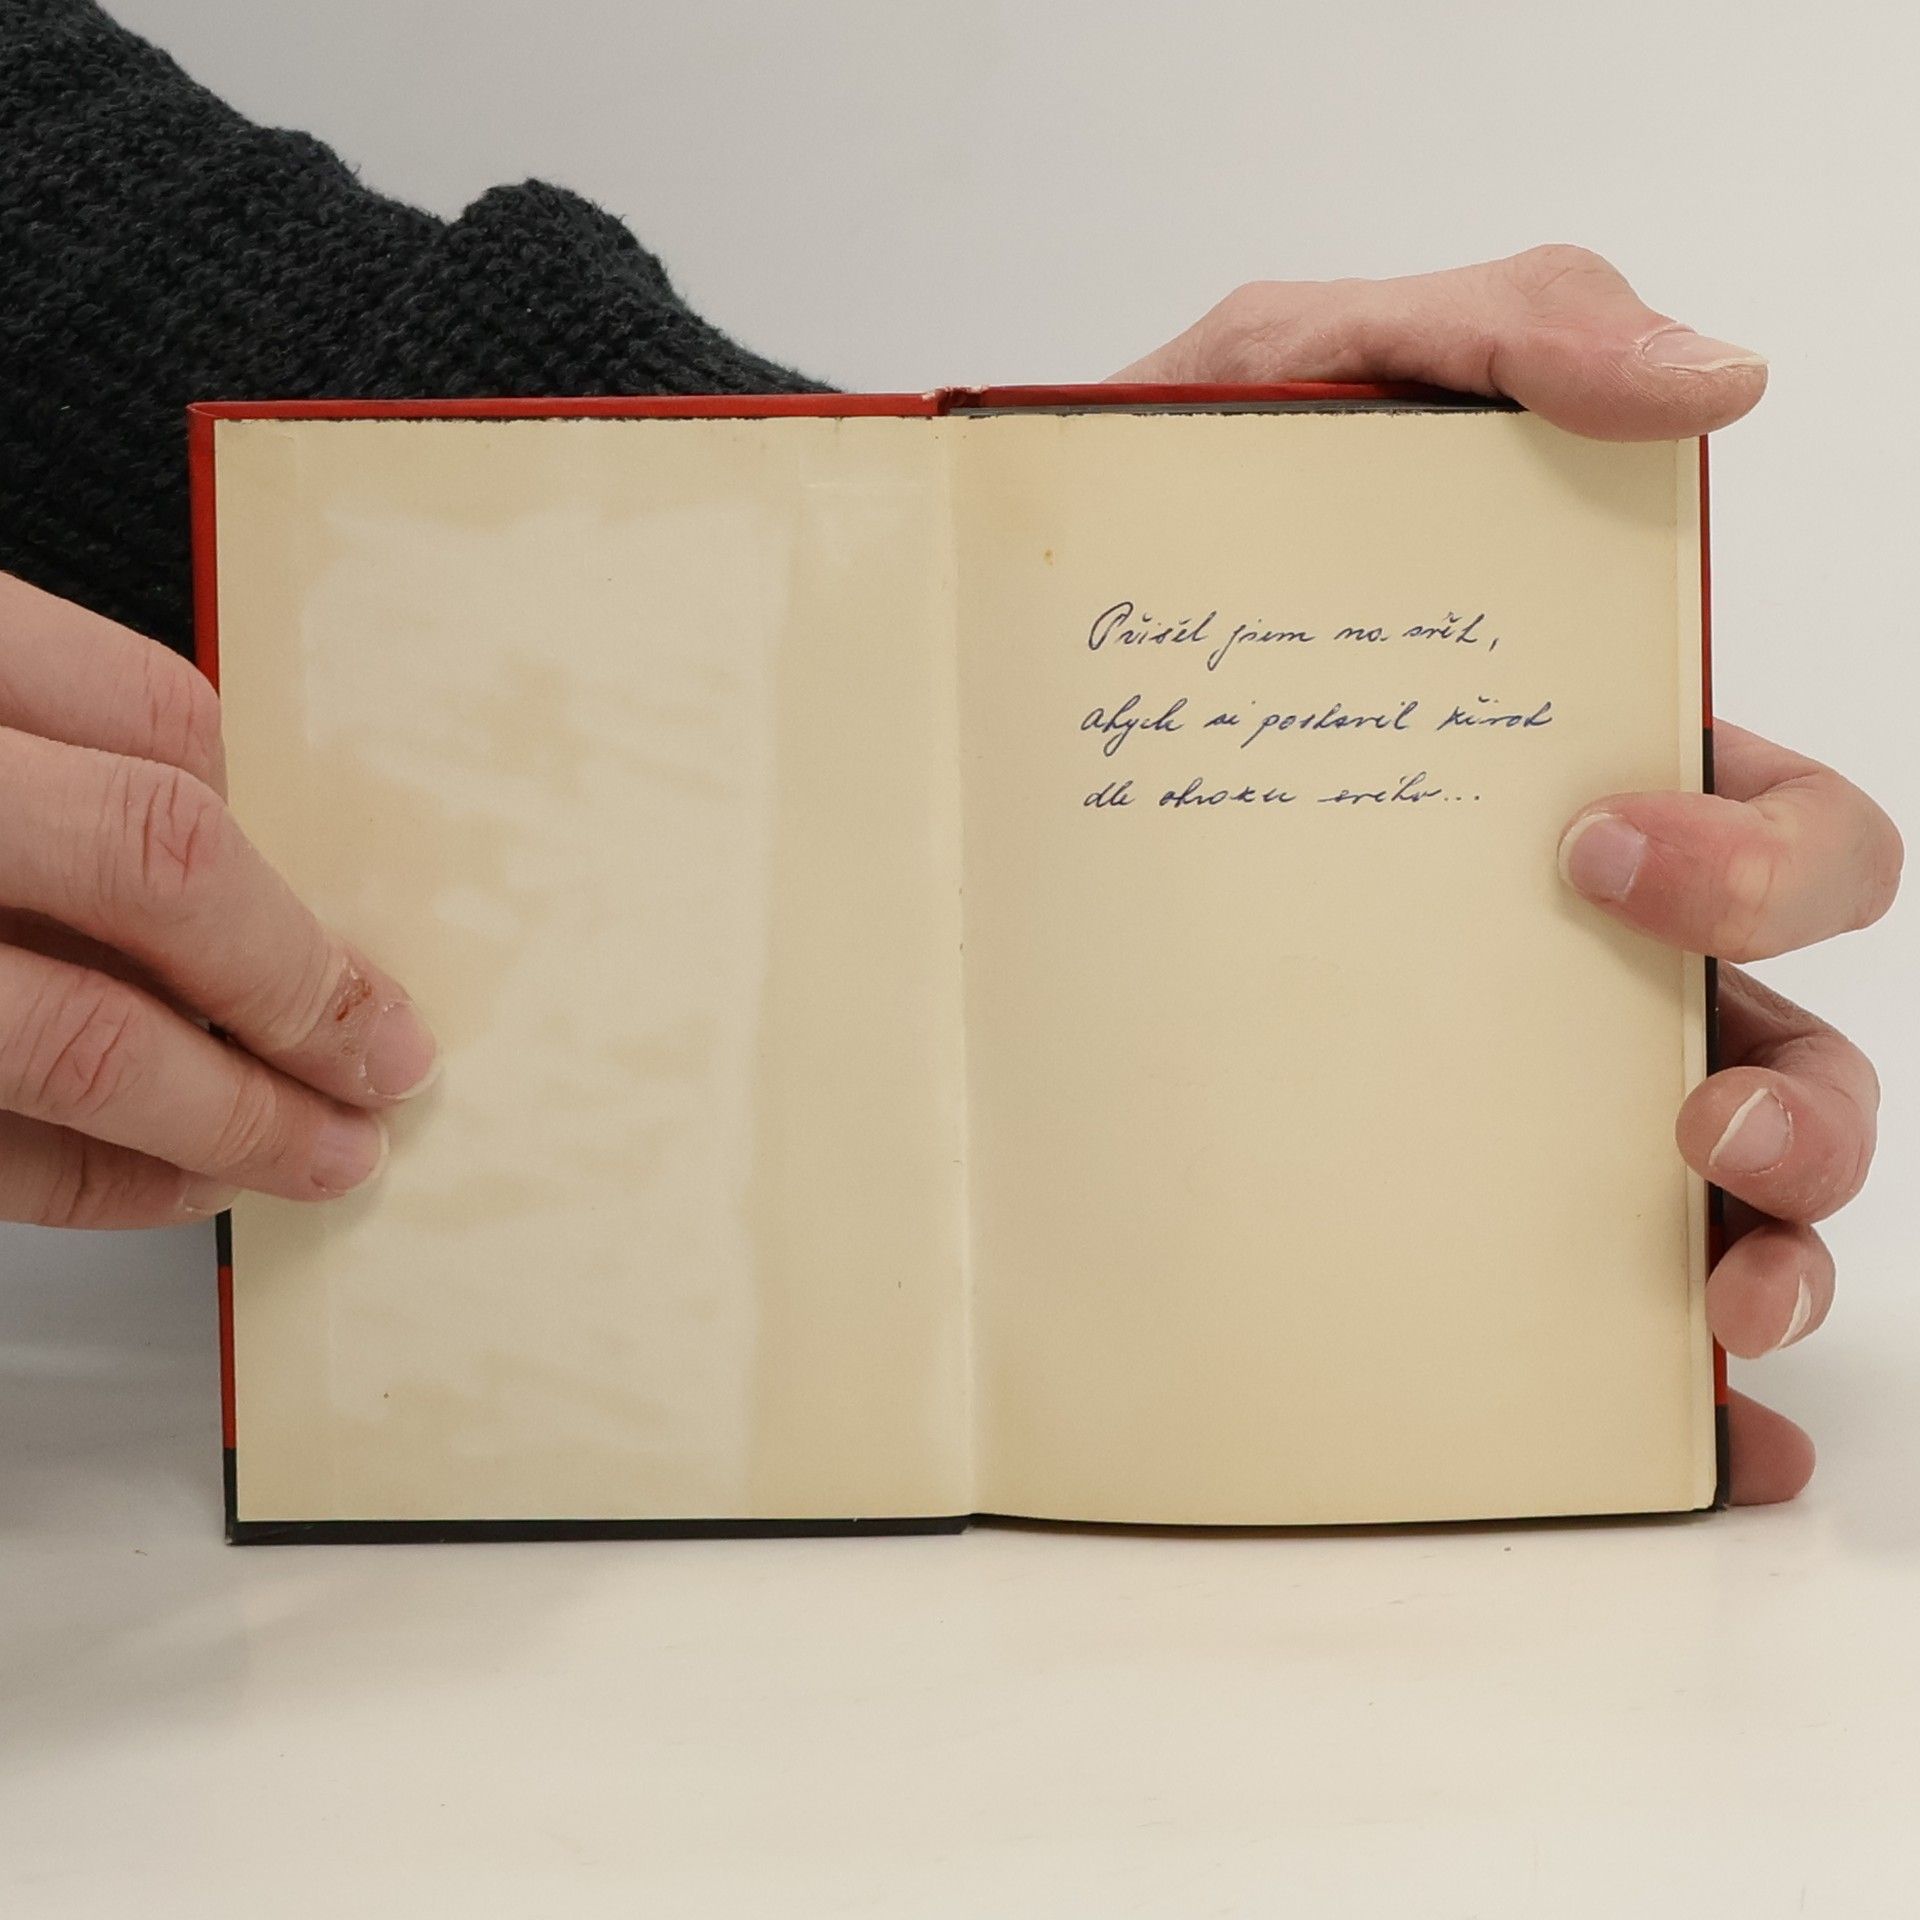 Přišel jsem na svět,
abych si postavil život
dle obrazu svého...